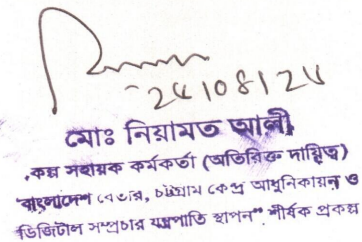 24/08/24
মোঃ নিয়ামত আলী
কল্প সহায়ক কর্মকর্তা (অতিরিক্ত দায়িত্ব)
"বাংলাদেশ বেতার, চট্টগ্রাম কেন্দ্র আধুনিকায়ন ও
ডিজিটাল সম্প্রচার যন্ত্রপাতি স্থাপন" শীর্ষক প্রকল্প